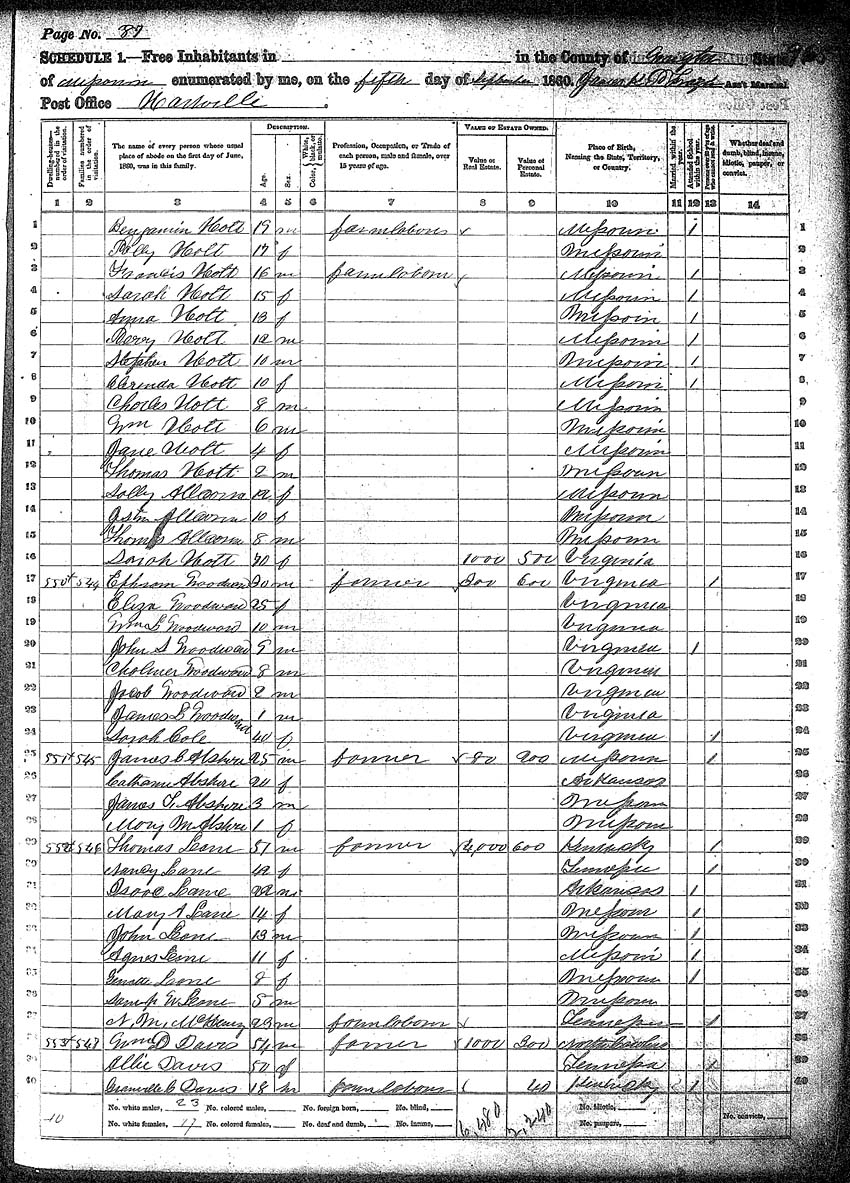 Page No. 89
SCHEDULE 1.—Free Inhabitants in in the County of State
of Missouri enumerated by me, on the fifth day of September 1860. Ass't Marshal.
Post Office Hartville
Dwelling-houses—numbered in the order of visitation. Families numbered in the order of visitation. The name of every person whose usual place of abode on the first day of June, 1860, was in this family. DESCRIPTION. Age. Sex. Color, White, black, or mulatto. Profession, Occupation, or Trade of each person, male and female, over 15 years of age. VALUE OF ESTATE OWNED. Value of Real Estate. Value of Personal Estate. Place of Birth, Naming the State, Territory, or Country. Married within the year. Attended School within the year. Whether deaf and dumb, blind, insane, idiotic, pauper, or convict.
1 2 3 4 5 6 7 8 9 10 11 12 13 14
1 Benjamin Hott 19 m farm labour Missouri 1 1
2 Polly Hott 17 f Missouri 2
3 Francis Hott 16 m farm labour Missouri 1 3
4 Sarah Hott 15 f Missouri 1 4
5 Anna Hott 13 f Missouri 1 5
6 Berry Hott 12 m Missouri 1 6
7 Stephen Hott 10 m Missouri 1 7
8 Clerinda Hott 10 f Missouri 1 8
9 Charles Hott 8 m Missouri 9
10 Wm Hott 6 m Missouri 10
11 Jane Hott 4 f Missouri 11
12 Thomas Hott 2 m Missouri 12
13 Solly 12 f Missouri 13
14 10 f Missouri 14
15 Thomas 8 m Missouri 15
16 Sarah Hott 70 f 1000 500 Virginia 16
17 550 544 Ephram Woodward 30 m farmer 200 600 Virginia 1 17
18 Eliza Woodward 25 f Virginia 18
19 Wm S Woodward 10 m Virginia 19
20 John S Woodward 9 m Virginia 1 20
21 Woodward 8 m Virginia 21
22 Jacob Woodward 2 m Virginia 22
23 James S Woodward 1 m Virginia 23
24 Sarah Cole 40 f Virginia 1 24
25 551 545 James C Abshire 25 m farmer 80 200 Missouri 1 25
26 Catharine Abshire 20 f Arkansas 26
27 James T. Abshire 3 m Missouri 27
28 Mary M Abshire 1 f Missouri 28
29 552 546 Thomas Leane 51 m farmer 4,000 600 Kentucky 1 29
30 Nancy Leane 42 f Tennessee 1 30
31 Isaac Leane 22 m Arkansas 1 31
32 Mary A Leane 14 f Missouri 1 32
33 John Leane 13 m Missouri 1 33
34 Agnes Leane 11 f Missouri 1 34
35 Leane 8 f Missouri 1 35
36 W Leane 5 m Missouri 36
37 N. M. 23 m farm labour Tennessee 1 37
38 553 547 Wm D Davis 54 m farmer 1000 300 North Carolina 38
39 Allie Davis 50 f Tennessee 39
40 Granville C Davis 18 m farm labour 40 Kentucky 1 40
No. white males, 23 No. colored males, No. foreign born, No. blind, No. idiotic,
10 No. white females, 17 No. colored females, No. deaf and dumb, No. insane, 6,480 2,240 No. paupers, No. convicts,